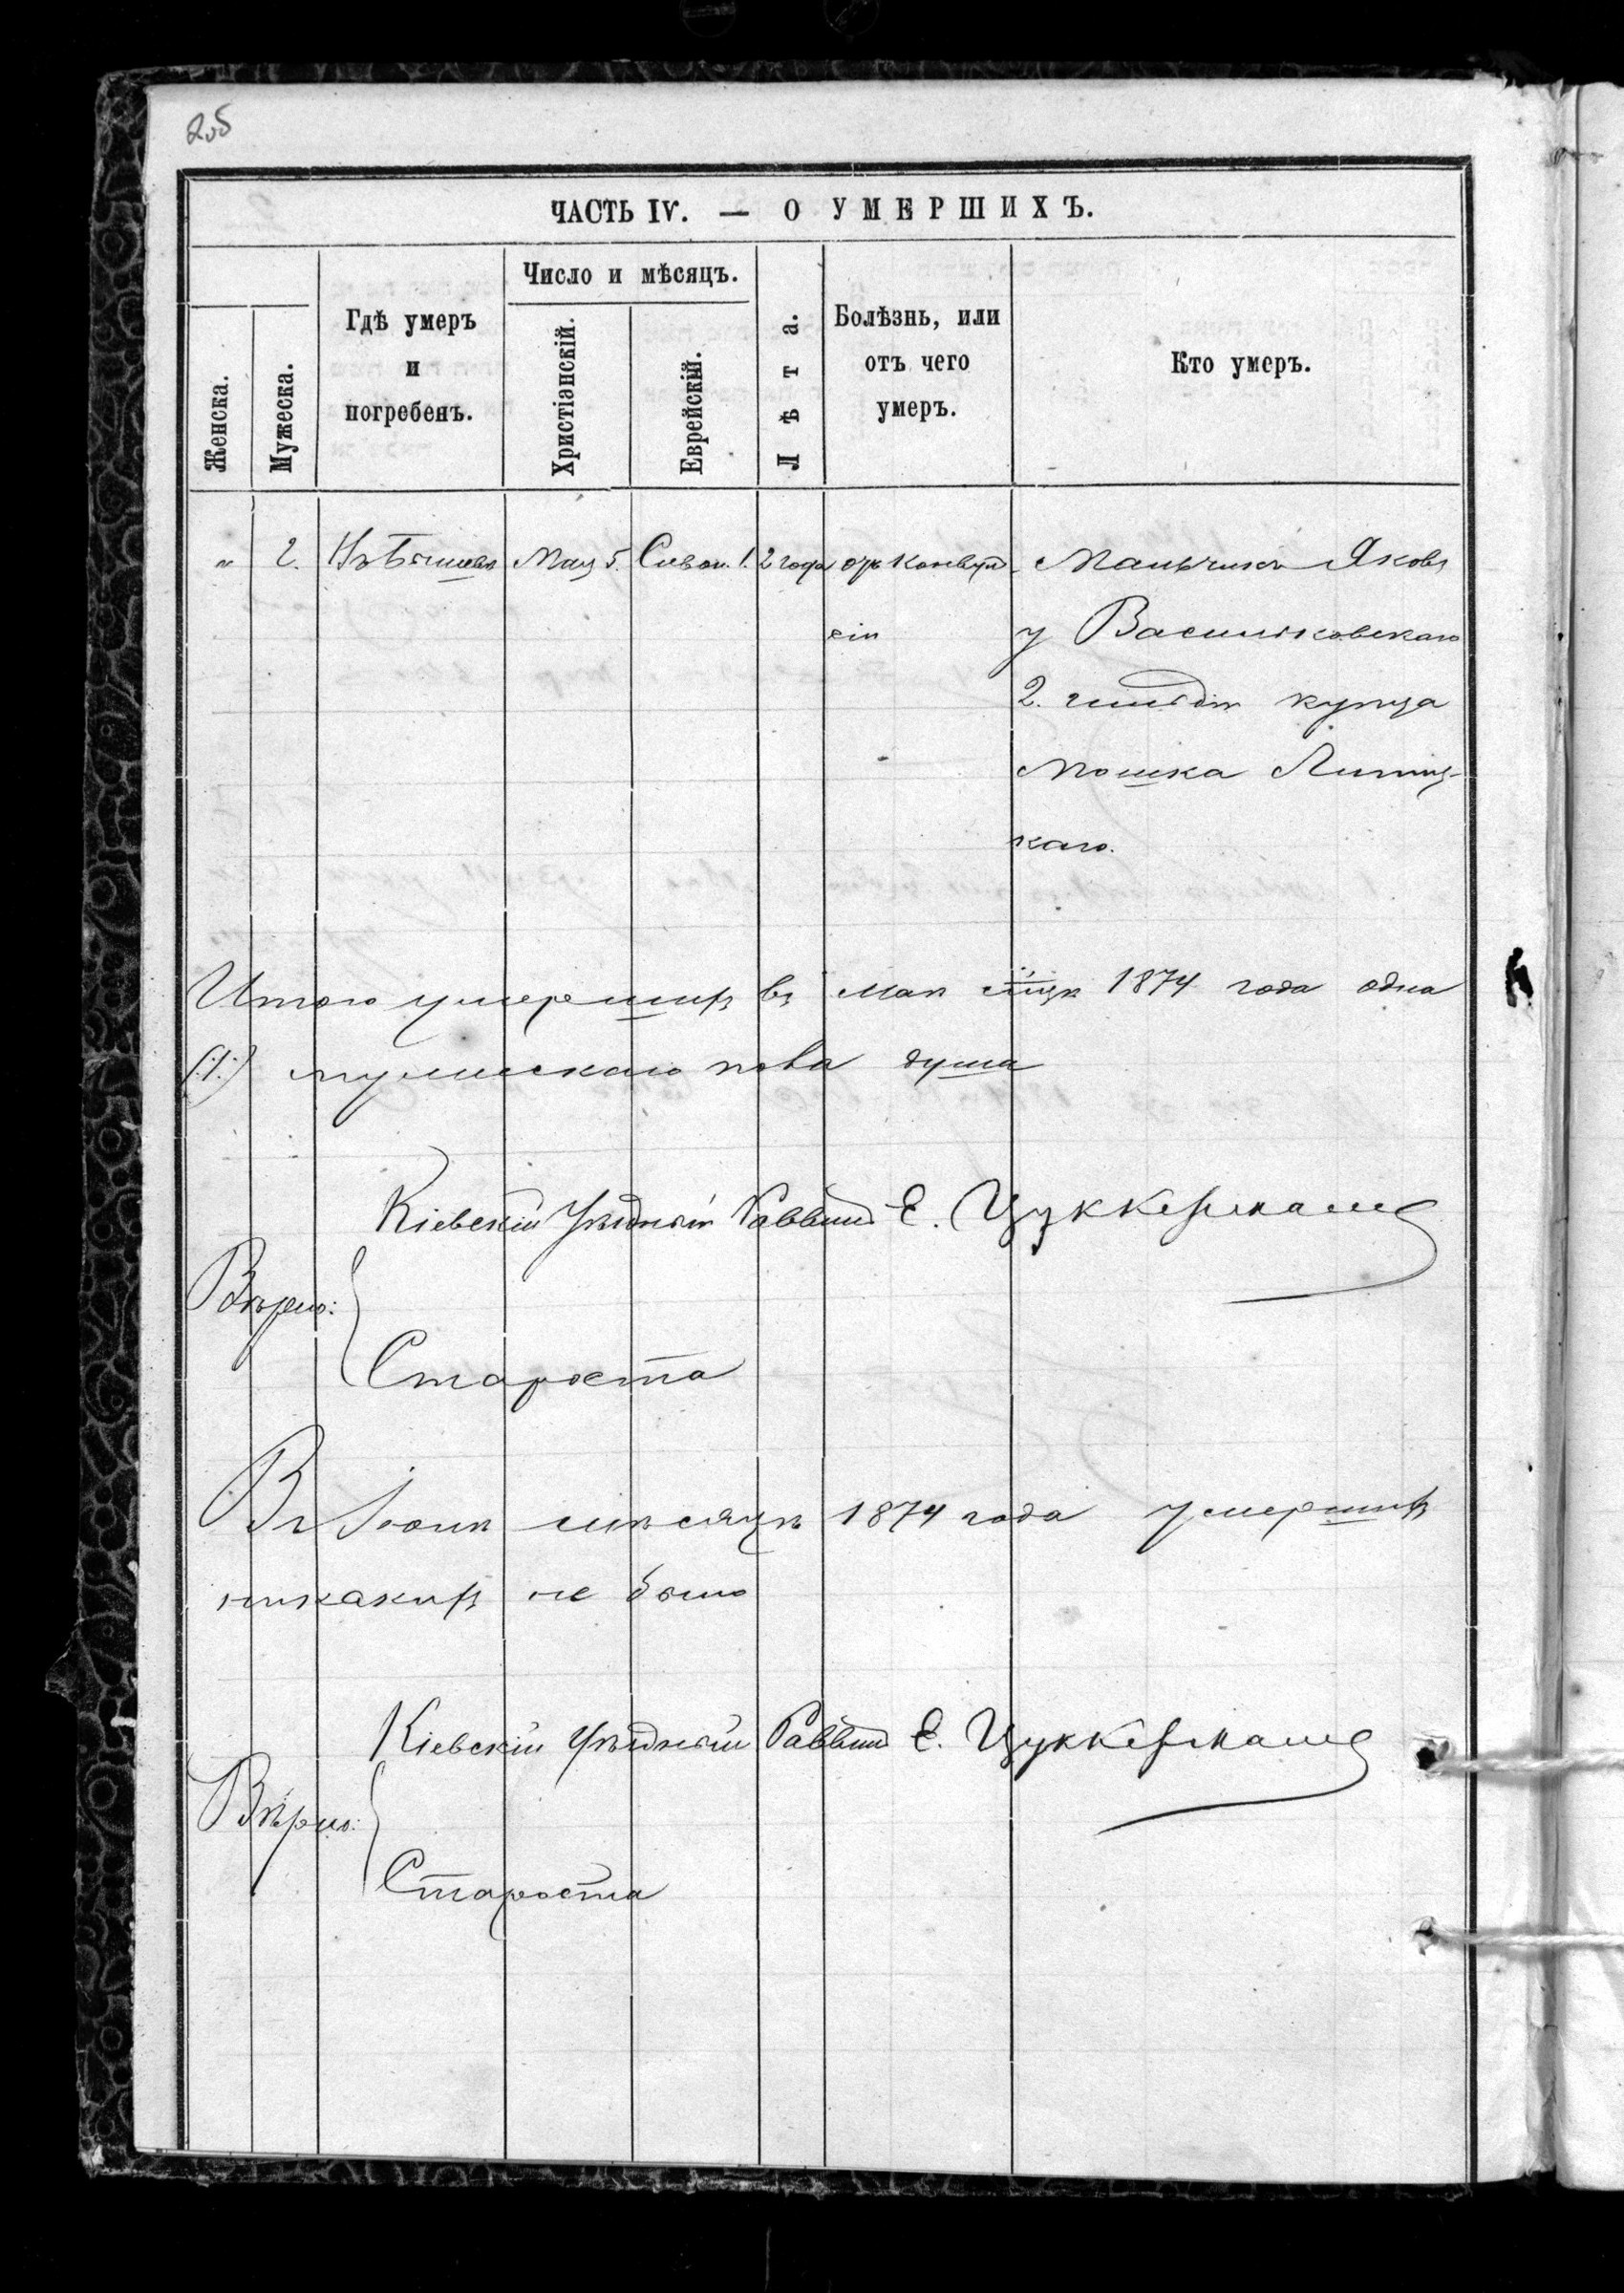 205
ЧАСТЬ IV. — О УМЕРШИХЪ.
Женска.
Мужеска.
Гдѣ умеръ
и
погребенъ.
Число и мѣсяцъ.
Христіэнскій.
Еврейскій.
Лѣта.
Болѣзнь, или
отъ чего
умеръ.
Кто умеръ.
" 2. Мая 5. Сиван. 1. 2 года отъ Конвул
сіи
Мальчикъ Яковъ
у Васильковскаго
2. гильдіи купца
Мошка Липиц-
каго.
Итого умершихъ въ маѣ м̃цѣ 1874 года одна
(:1:) мужескаго пола душа
Кіевскій Уѣздный Раввинъ Е. Цуккерманъ
Вѣрно:
Староста
Въ Іюнѣ мѣсяцѣ 1874 года умершихъ
никакихъ не было
Кіевскій Уѣздный Раввинъ Е. Цуккерманъ
Вѣрно:
Староста